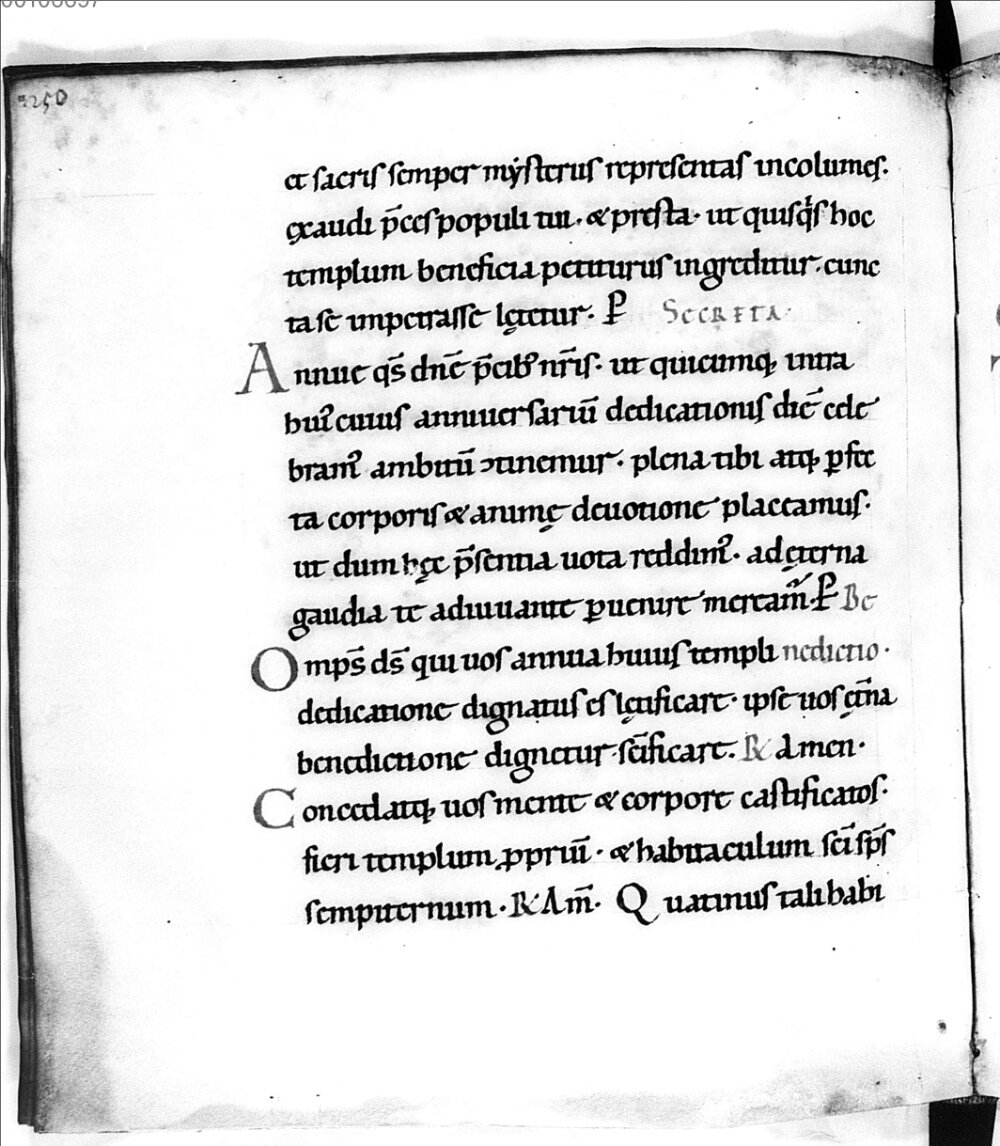 250
et sacris semper mẏsteriis representas incolumes.
ęxaudi p̄ces populi tui. & presta. ut quisq̇s hoc
templum beneficia petiturus ingreditur. cunc
ta se impetrasse lętetur. P̱ SECRETA.
Annue q̄s dn̄e p̄cib; nr̄is. ut quicumq; intra
hui᾽ cuius anniuersariū dedicationis diē cele
bram᾽ ambitū ↄtinemur. plena tibi atq; ꝑfec
ta corporis & animę deuotione placeamus.
ut dum hęc p̄sentia uota reddim᾽. ad ęterna
gaudia te adiuuante ꝑuenire meream̄. P̱ Be
Omps̄ ds̄ qui uos annua huius templi nedictio.
dedicatione dignatus es lętificare. ipse uos ęt̄na
benedictione dignetur sc̄ificare. R̷ Amen.
Concedatq; uos mente & corpore castificatos.
fieri templum ꝓpriū. & habitaculum sc̄i sp̄s
sempiternum. R̷ Am̄. Quatinus tali habi